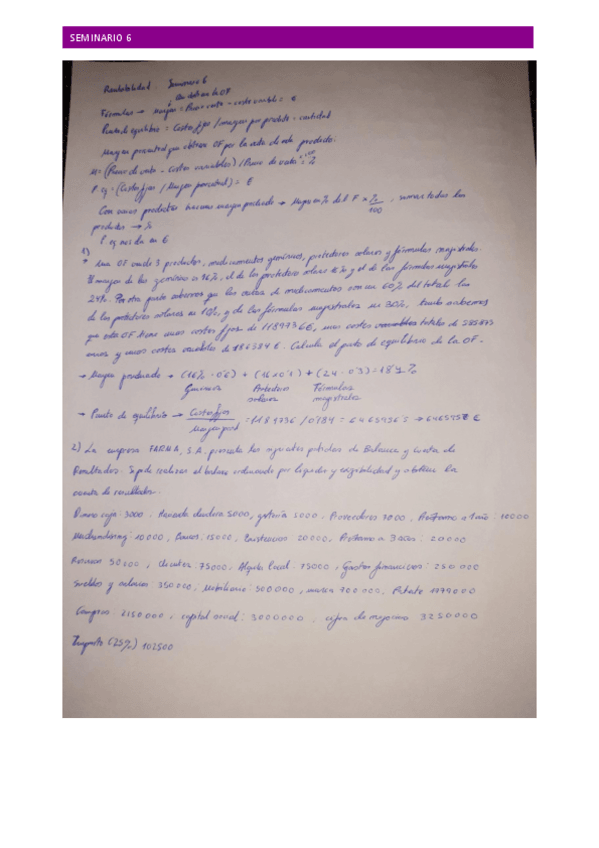 SEMINARIO 6
Rentabilidad Seminario 6
Fórmulas → Margen = Precio venta - coste variable = €
Punto de equilibrio = Costes fijos / margen por producto = cantidad
Margen porcentual que obtiene OF por la venta de cada producto:
M = (Precio de venta - Costes variables) / Precio de venta = %
P. eq = (Costes fijos / Margen porcentual) = €
Con varios productos hacemos margen ponderado → Margen en % del F × %/100, sumas todos los
productos → %
P. eq nos da en €
1)
Una OF vende 3 productos, medicamentos genéricos, protectores solares y fórmulas magistrales.
El margen de los genéricos es 16%, el de los protectores solares 16% y el de las fórmulas magistrales
24%. Por otra parte sabemos que las ventas de medicamentos son un 60% del total, las
de los protectores solares un 10%, y de las fórmulas magistrales un 30%,
que esta OF tiene unos costes fijos de 1189736€, unos costes totales de
euros y unos costes variables de 186384€. Calcula el punto de equilibrio de la OF.
→ Margen ponderado → (16% · 0'6) + (16 · 0'1) + (24 · 0'3) = 18'%
Genéricos Protectores solares Fórmulas magistrales
→ Punto de equilibrio → Costes fijos / Margen pond = / 0'184 = €
2) La empresa FARMA, S.A, presenta las siguientes partidas de Balance y Cuenta de
Resultados. Se pide realizar el balance ordenado por liquidez y exigibilidad y obtener la
cuenta de resultados.
Dinero caja: 3000. Hacienda deudora 5000, 5000, Proveedores 7000, Préstamo a 1 año: 10000
Merchandising: 10000, Bancos: 15000, Existencias 20000, Préstamo a 3 años: 20000
Reservas 50000, clientes: 75000, Alquiler local: 75000, Gastos financieros: 250000
Sueldos y salarios: 350000, Mobiliario: 500000, marca 700000, Patente 1179000
Compras: 2150000, capital social: 3000000, cifra de negocios 3250000
Impuesto (25%) 102500